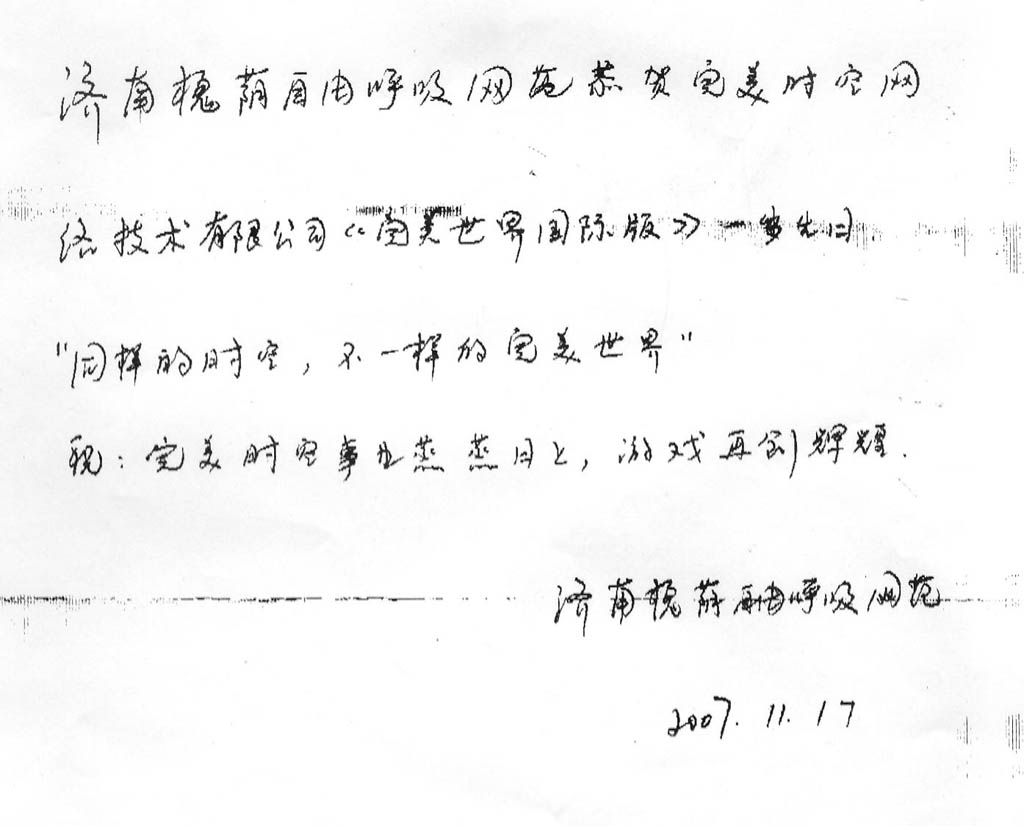 济南槐荫自由呼吸网苑恭贺完美时空网
络技术有限公司《完美世界国际版》一岁生日
"同样的时空，不一样的完美世界"
祝：完美时空事业蒸蒸日上，游戏再创辉煌.
济南槐荫自由呼吸网苑
2007.11.17